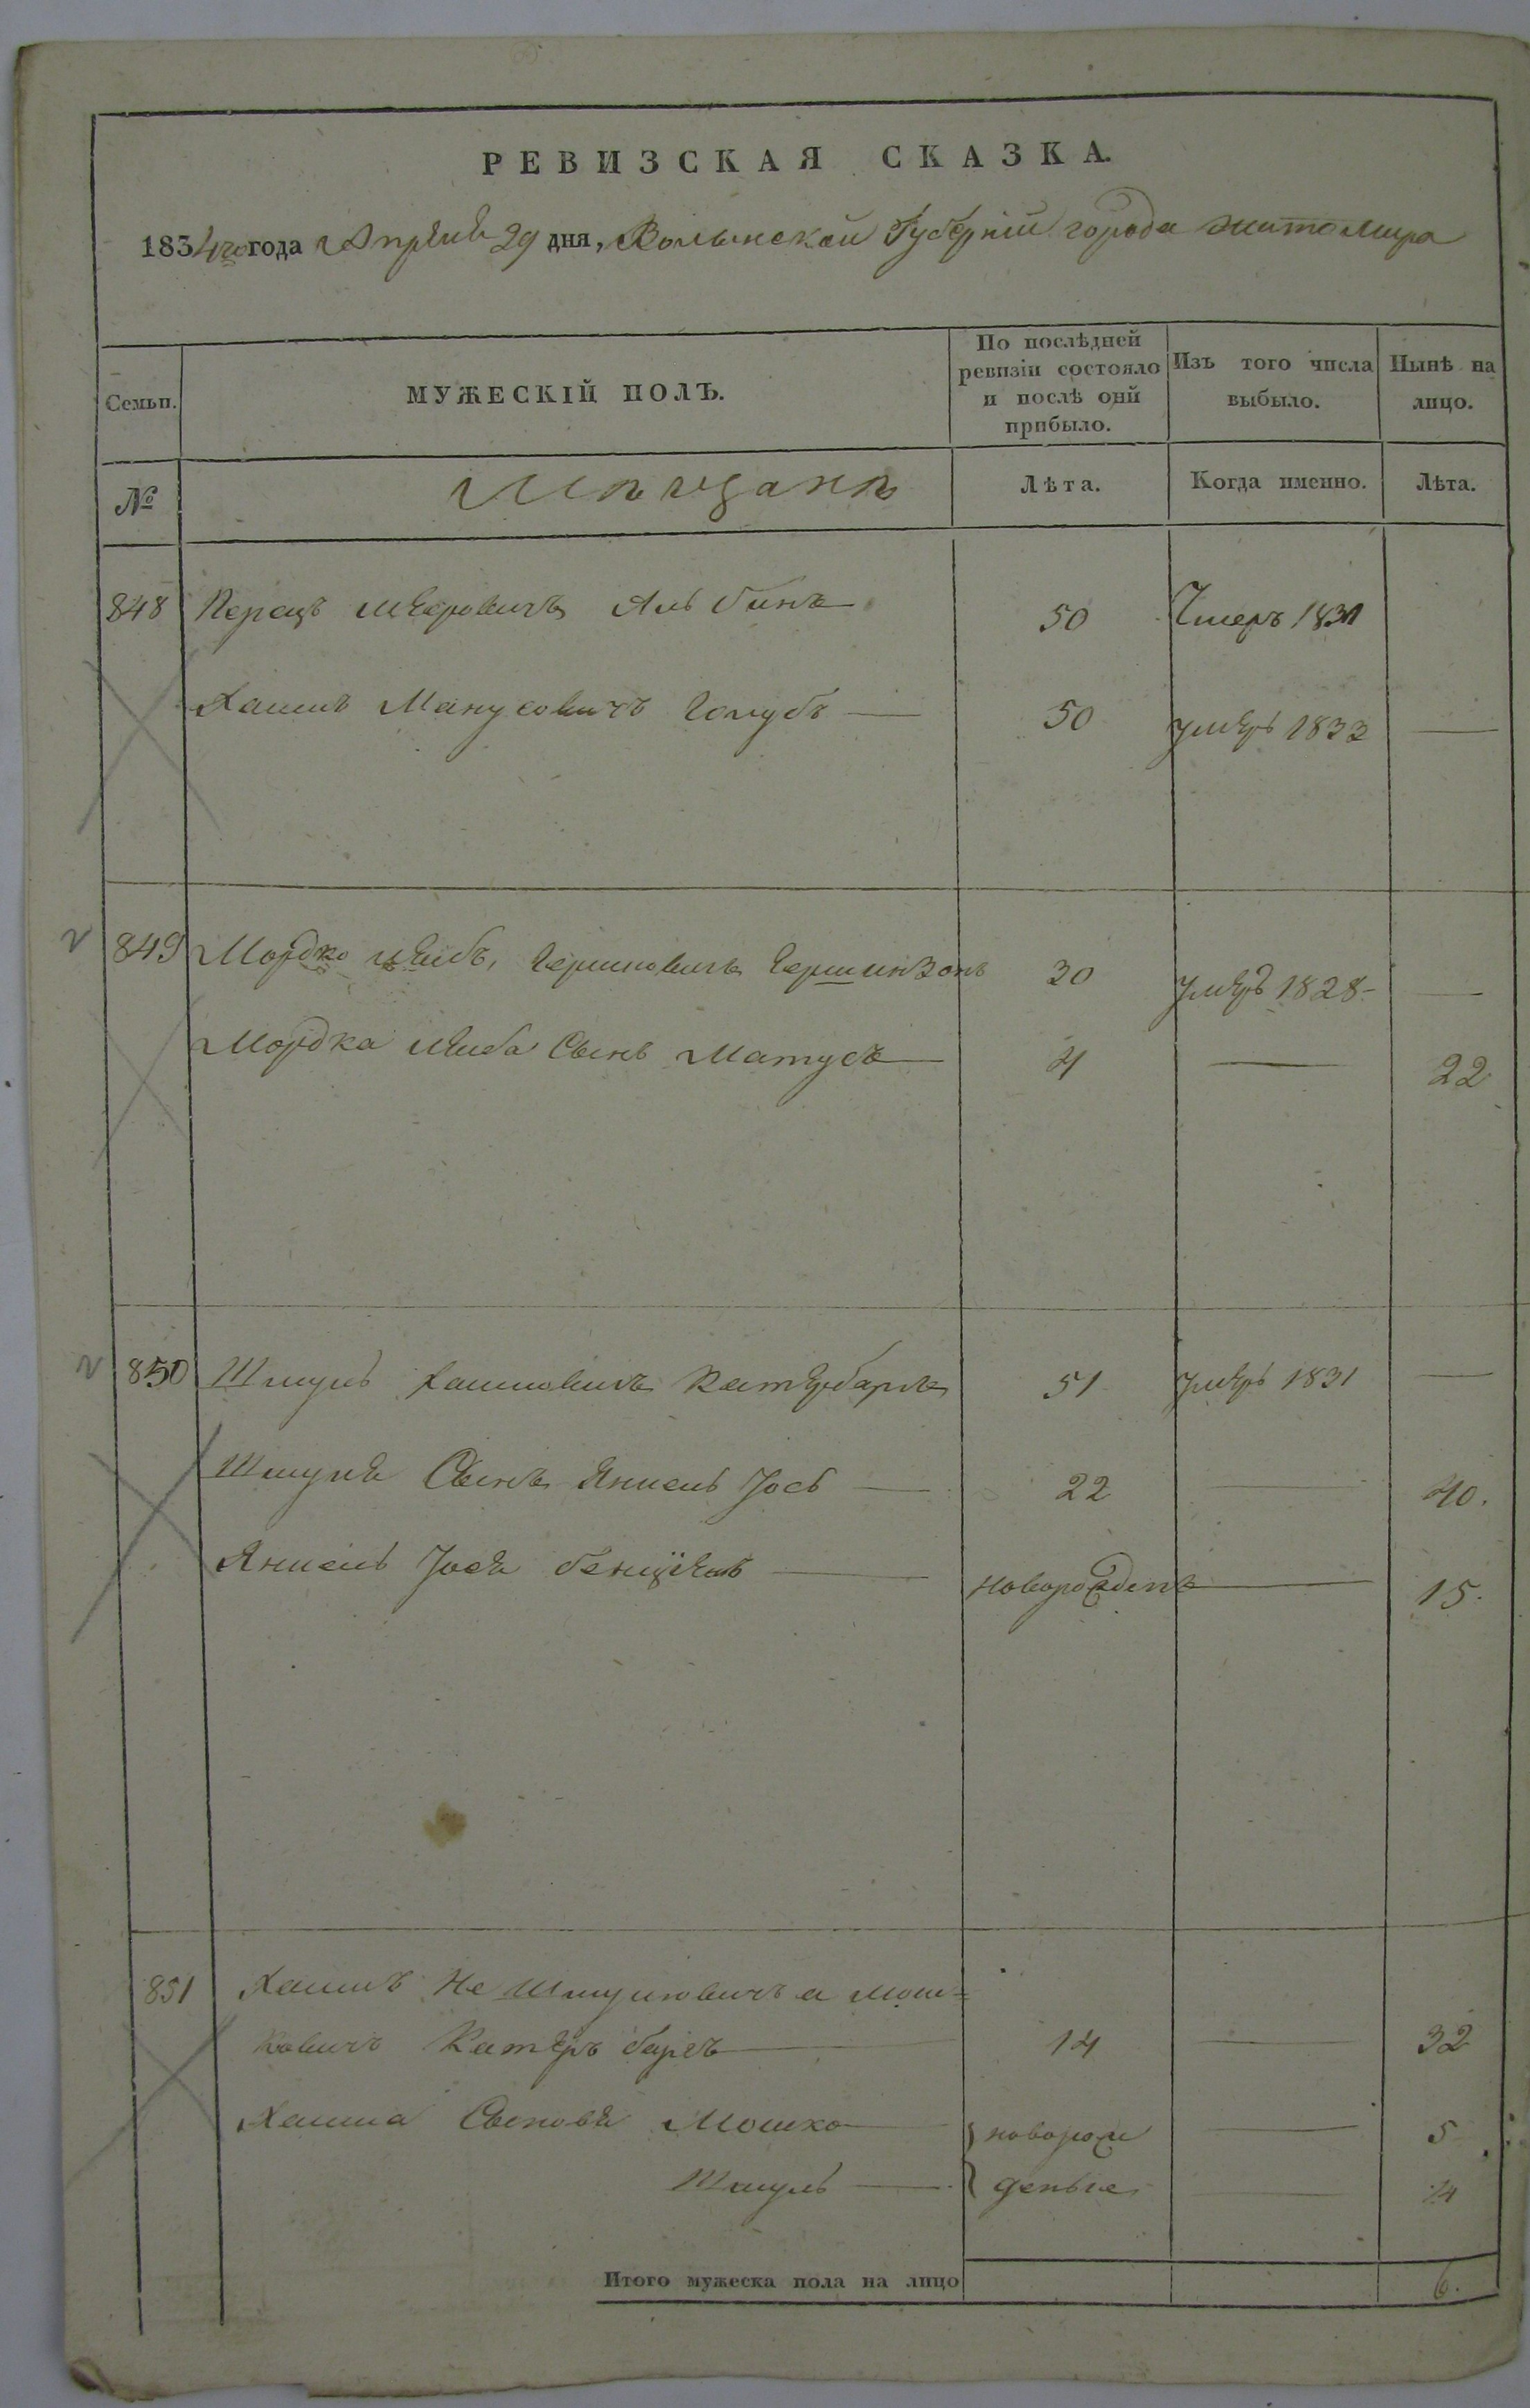 РЕВИЗСКАЯ СКАЗКА.
1834го года Апреля 29 дня, Волынской Губернiи города Житомира
Семьи. МУЖЕСКІЙ ПОЛЪ. По послѣдней ревизіи состояло и послѣ оий прибыло. Изъ того числа выбыло. Нынѣ на лицо.
№ Мѣщанѣ Лѣта. Когда именно. Лѣта.
848 Перецъ Меэровичъ Альбинъ 50 Умеръ 1831
Хаимъ Манусовичъ Голубъ — 50 умеръ 1833 —
849 Мордко Лейбъ, Гершковичъ Гершинзонъ 30 умеръ 1828 —
Мордка Лейба Сынъ Матусъ — 4 — 22
850 Шмуль Хаимовичъ Катербарсъ 51 умеръ 1831 —
Шмуля Сынъ Янкель Іось — 22 — 40.
Янкель Іося — новорожденъ — 15.
851 Хаимъ Не Шмулювичъ а Мош=
ковичъ Катеръ барсъ — 14 — 32
Хаима Сыновя Мошко — новорож — 5
Шмуль — деные — 14
Итого мужеска пола на лицо 6.